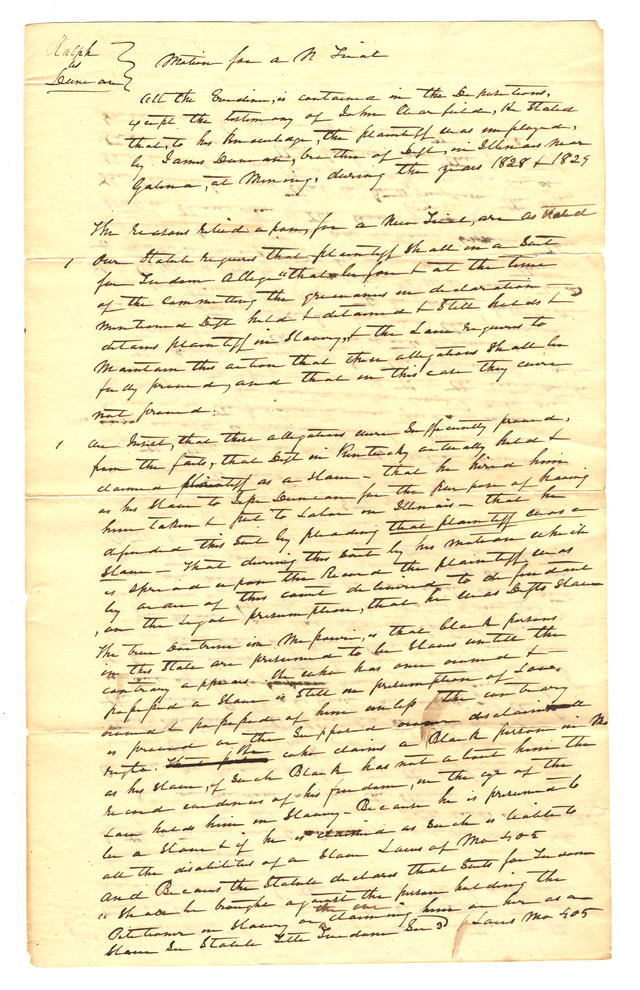 Ralph
vs
Duncan
Motion for a N Trial
All the Evidence, is contained in the Depositions,
except the testimony of John Clearfield, He Stated
that, to his Knowledge, the plaintiff was employed,
by James Duncan, brother of Deft, in Illinois near
Galena, at Mining, during the years 1828 & 1829
The reasons relied upon, for a New Trial, are as stated
1 Our Statute requires that plaintiff shall in a Suit
for freedom allege "that before & at the time
of the committing the grievances in declaration
mentioned Deft held & detained & still holds &
detains plaintiff in Slavery, & the Law requires to
maintain this action that these allegations shall be
fully proved, and that in this case they were
not proved.
1 We Insist, that these allegations were Sufficiently proved,
from the facts, that Deft in Kentucky actually held &
claimed plaintiff as a Slave – that he hired him
as his Slave to Duncan for the purpose of having
him taken & put to Labor in Illinois – that he
defended this Suit by pleading that plaintiff was a
Slave – That during this Suit by his motion which
is spread upon the Record the plaintiff was
by order of this court delivered to defendant
, on the legal presumption, that he was Defts Slave
The true doctrine in Missouri, is that black persons
in this State are presumed to be Slaves until the
contrary appears. He who has once owned &
possessed a Slave is Still in presumption of Law
owned & possessed of him unless the contrary
is proved or the Supposed owner disclaims all
right. who claims a Black person in Mo
as his Slave, if Such Black has not about him the
record evidences of his freedom, in the eye of the
Law holds him in Slavery – Because he is presumed to
be a Slave & if he is claimed as Such is liable to
all the disabilities of a Slave Laws of Mo 405
And Because the Statute declares that Suits for freedom
"Shall be brought against the person holding the
Petitioner in Slavery or the one claiming him or her as a
Slave See Statute Title Freedom Sec 3d Laws Mo 405